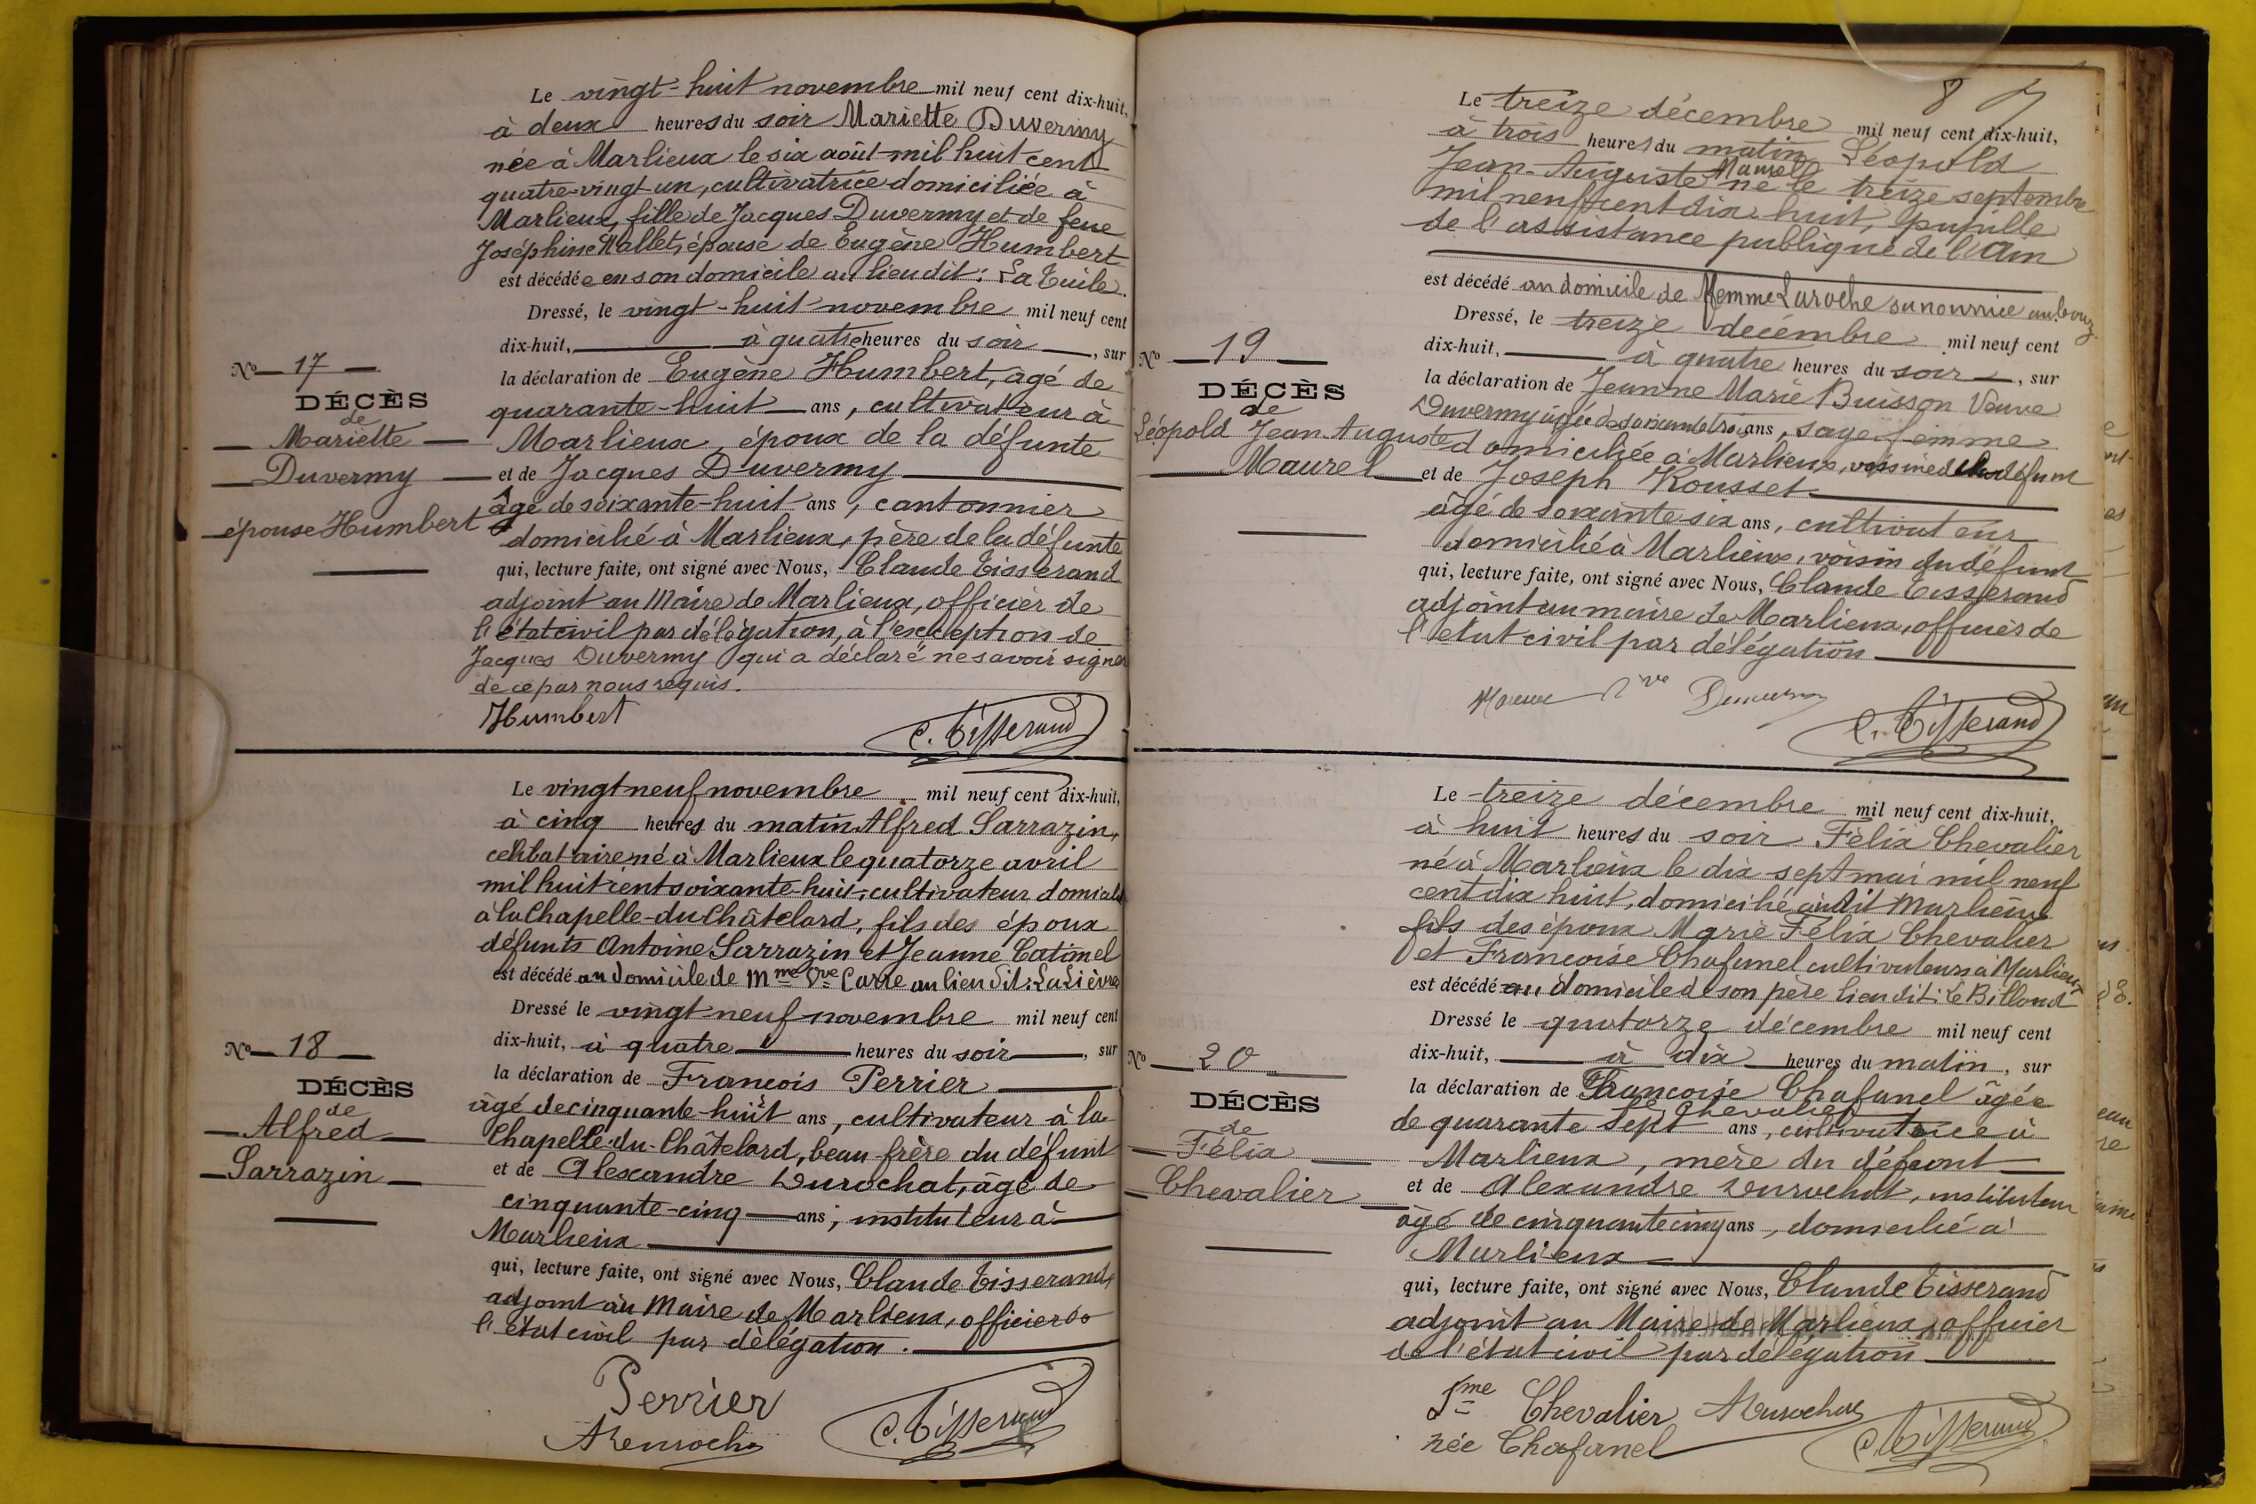 Le vingt-huit novembre mil neuf cent dix-huit,
à deux heures du soir Mariette Duvermy
née à Marlieux le six août mil huit cent
quatre-vingt-un, cultivatrice domiciliée à
Marlieux, fille de Jacques Duvermy et de feue
Joséphine Mallet, épouse de Eugène Humbert
est décédée en son domicile au lieu dit: La Tuile.
Dressé, le vingt-huit novembre mil neuf cent
dix-huit, à quatre heures du soir, sur
la déclaration de Eugène Humbert, âgé de
quarante-huit ans, cultivateur à
Marlieux, époux de la défunte
et de Jacques Duvermy
âgé de soixante-huit ans, cantonnier
domicilié à Marlieux, père de la défunte
qui, lecture faite, ont signé avec Nous, Claude Tisserand
adjoint au Maire de Marlieux, officier de
l'état civil par délégation, à l'exception de
Jacques Duvermy qui a déclaré ne savoir signer
de ce par nous requis.
Humbert
C. Tisserand
No 17
DÉCÈS
de
Mariette
Duvermy
épouse Humbert
Le vingt neuf novembre mil neuf cent dix-huit,
à cinq heures du matin Alfred Sarrazin,
célibataire né à Marlieux le quatorze avril
mil huit cent soixante-huit, cultivateur domicilié
à la Chapelle-du-Châtelard, fils des époux
défunts Antoine Sarrazin et Jeanne Catimel
est décédé au domicile de Mme Vve Carre au lieu dit: La Lièvre
Dressé le vingt neuf novembre mil neuf cent
dix-huit, à quatre heures du soir, sur
la déclaration de François Perrier
âgé de cinquante-huit ans, cultivateur à la
Chapelle-du-Châtelard, beau-frère du défunt
et de Alexandre Durochat, âgé de
cinquante-cinq ans, instituteur à
Marlieux
qui, lecture faite, ont signé avec Nous, Claude Tisserand,
adjoint au Maire de Marlieux, officier de
l'état civil par délégation.
Perrier
C. Tisserand
No 18
DÉCÈS
de
Alfred
Sarrazin
8
Le treize décembre mil neuf cent dix-huit,
à trois heures du matin Léopold
Jean-Auguste Maurel né le treize septembre
mil neuf cent dix huit, pupille
de l'assistance publique de l'Ain
est décédé au domicile de Femme Laroche sa nourrice au bourg.
Dressé, le treize décembre mil neuf cent
dix-huit, à quatre heures du soir, sur
la déclaration de Jeanne Marie Buisson Veuve
Duvermy âgée de soixante trois ans, sage-femme
domiciliée à Marlieux, voisine du défunt
et de Joseph Rousset
âgé de soixante six ans, cultivateur
domicilié à Marlieux, voisin du défunt
qui, lecture faite, ont signé avec Nous, Claude Tisserand
adjoint au maire de Marlieux, officier de
l'état civil par délégation
Vve Duvermy
C. Tisserand
No 19
DÉCÈS
de
Léopold Jean Auguste
Maurel
Le treize décembre mil neuf cent dix-huit,
à huit heures du soir Félix Chevalier
né à Marlieux le dix sept mai mil neuf
cent dix huit, domicilié audit Marlieux
fils des époux Marie Félix Chevalier
et Françoise Chafanel cultivateurs à Marlieux
est décédé au domicile de son père lieu dit: Le Billoud
Dressé le quatorze décembre mil neuf cent
dix-huit, à dix heures du matin, sur
la déclaration de Françoise Chafanel âgée
fe Chevalier
de quarante sept ans, cultivatrice à
Marlieux, mère du défunt
et de Alexandre Durochat, instituteur
âgé de cinquante cinq ans, domicilié à
Marlieux
qui, lecture faite, ont signé avec Nous, Claude Tisserand
adjoint au Maire de Marlieux, officier
de l'état civil par délégation
Fme Chevalier A Durochat
née Chafanel
C. Tisserand
No 20
DÉCÈS
de
Félix
Chevalier